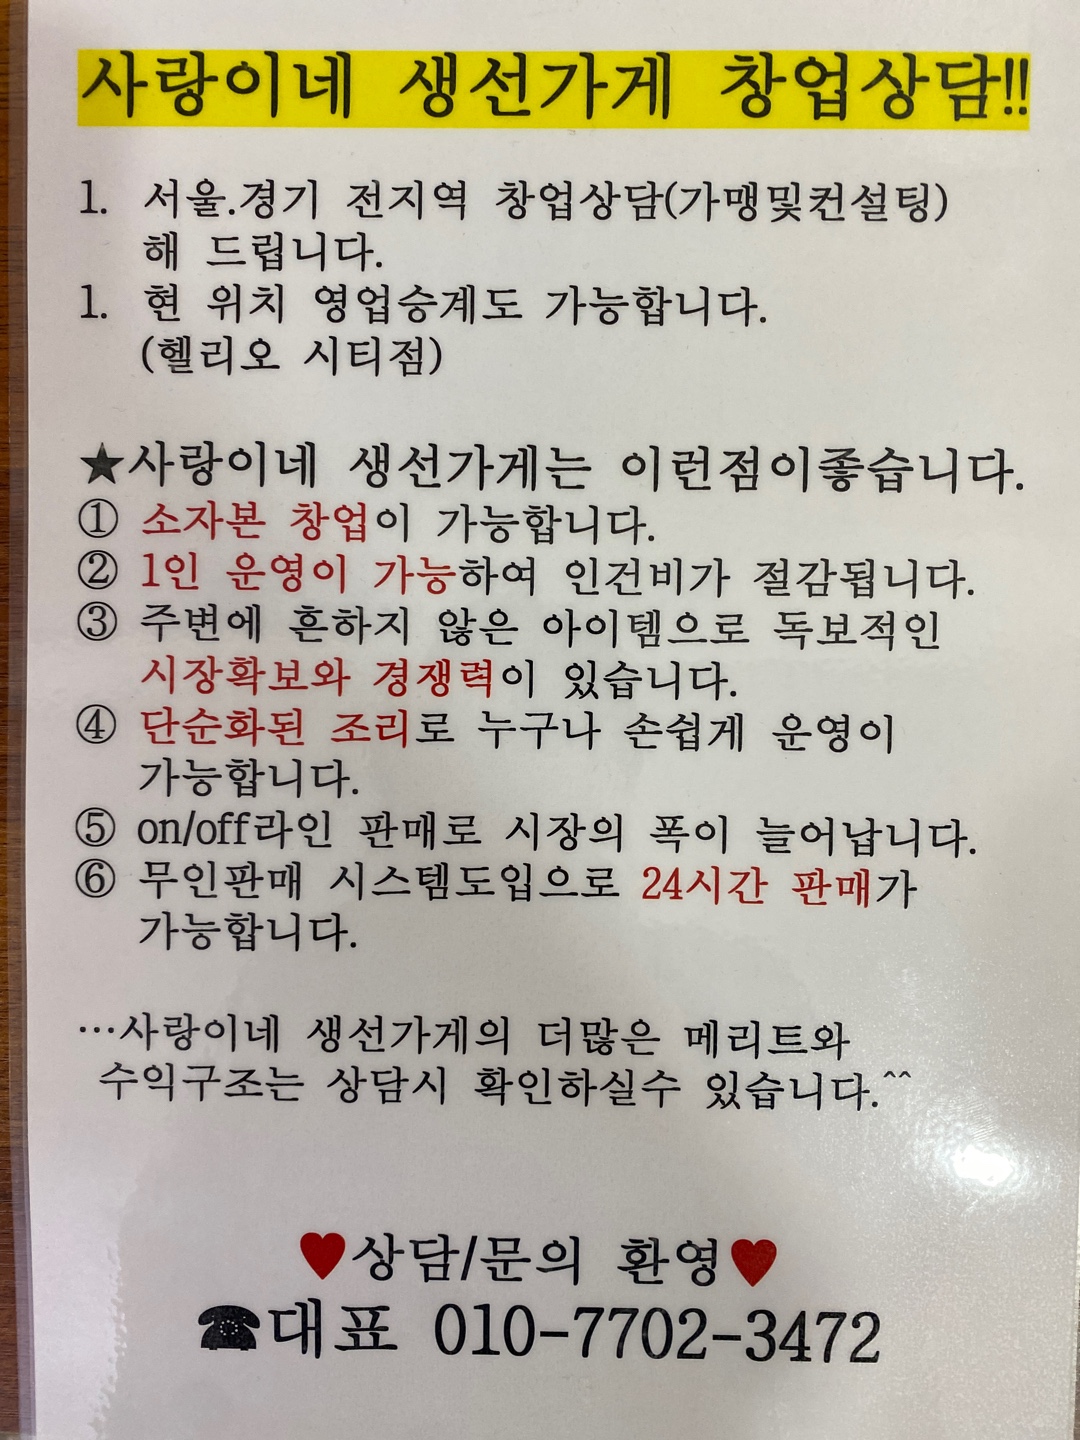 사랑이네 생선가게 창업상담!!
1. 서울.경기 전지역 창업상담(가맹및컨설팅)
해 드립니다.
1. 현 위치 영업승계도 가능합니다.
(헬리오 시티점)
★사랑이네 생선가게는 이런점이좋습니다.
① 소자본 창업이 가능합니다.
② 1인 운영이 가능하여 인건비가 절감됩니다.
③ 주변에 흔하지 않은 아이템으로 독보적인
시장확보와 경쟁력이 있습니다.
④ 단순화된 조리로 누구나 손쉽게 운영이
가능합니다.
⑤ on/off라인 판매로 시장의 폭이 늘어납니다.
⑥ 무인판매 시스템도입으로 24시간 판매가
가능합니다.
…사랑이네 생선가게의 더많은 메리트와
수익구조는 상담시 확인하실수 있습니다.^^
♥상담/문의 환영♥
☎대표 010-7702-3472